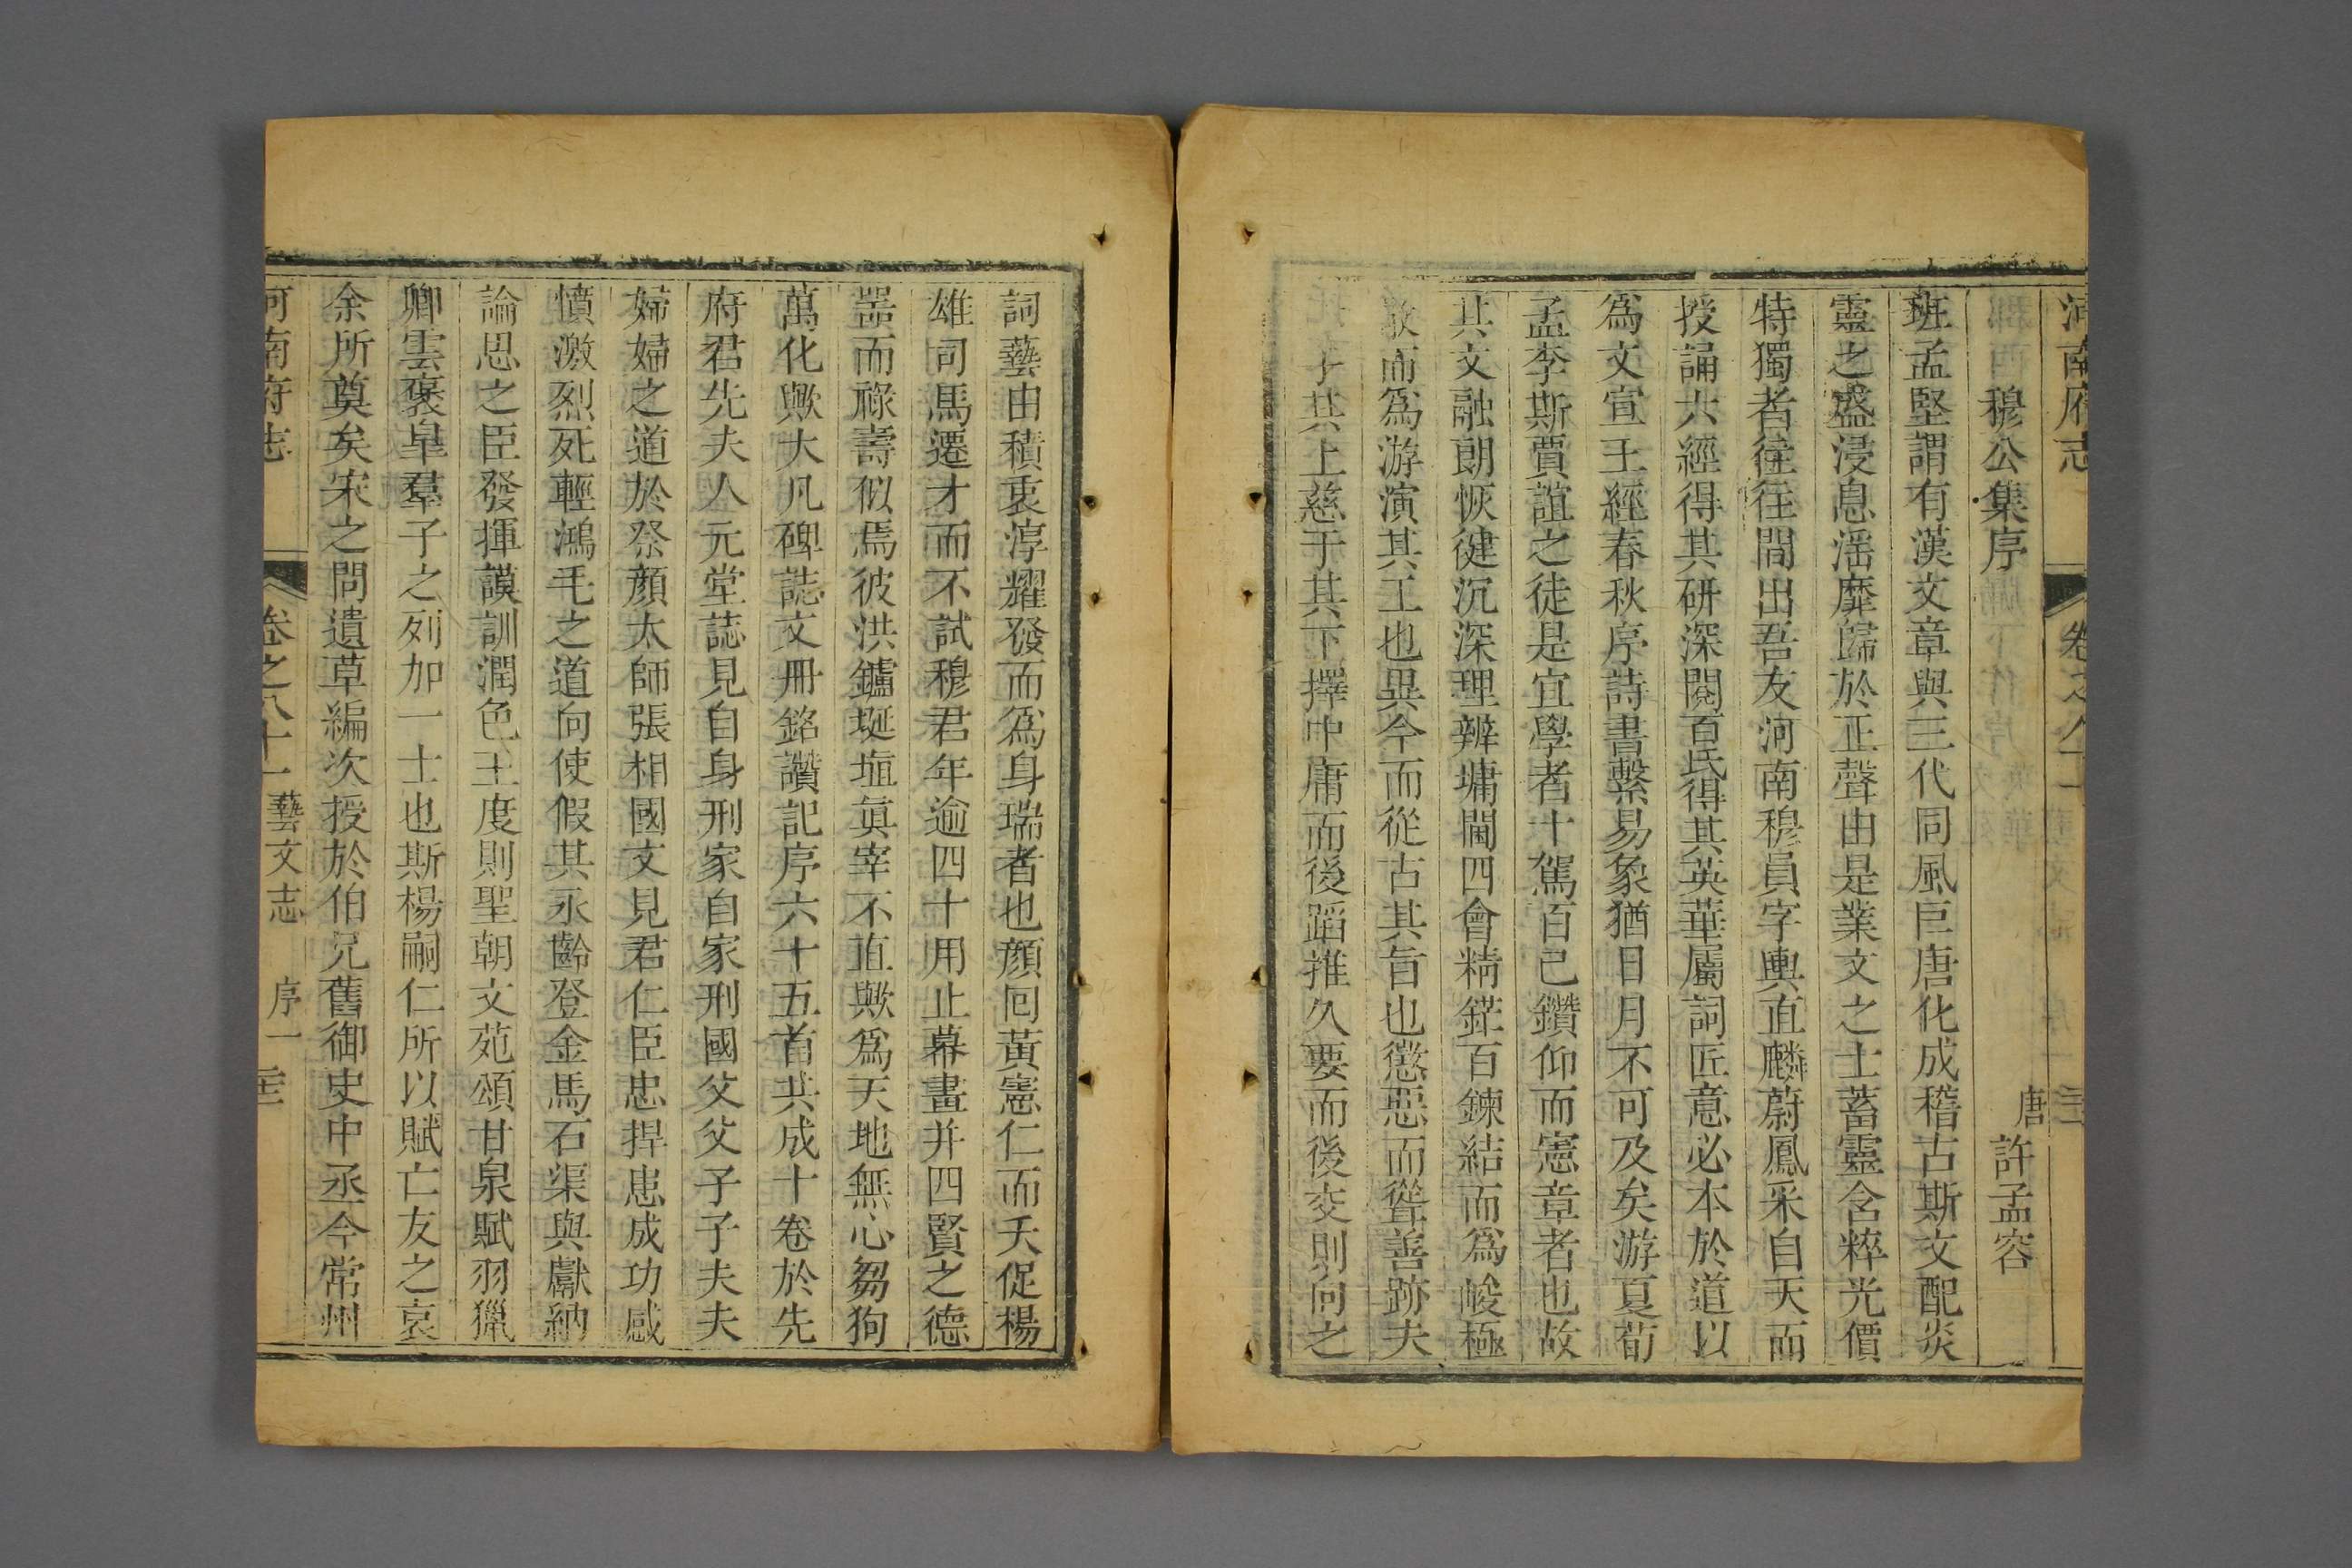 河南府志 卷之八十一
穆公集序 唐許孟容
班孟堅謂有漢文章與三代同風巨唐化成稽古斯文配炎
靈之盛浸息滛靡歸於正聲由是業文之士蓄靈含粹光價
特獨者往往間出吾友河南穆員字輿直麟蔚鳳采自天而
授誦六經得其研深閱百氏得其英華屬詞匠意必本於道以
為文宣王經春秋序詩書繫易象猶日月不可及矣游夏荀
孟李斯賈誼之徒是宜學者十駕百已鑽仰而憲章者也故
其文融朗恢健沉深理辨墉閫四會精鋩百鍊結而爲峻極
散而爲游演其工也異今而從古其旨也懲惡而聳善跡夫
于其上慈于其下擇中庸而後蹈推久要而後交則向之
詞藝由積衷淳耀發而爲身瑞者也顏回黃憲仁而夭促楊
雄司馬遷才而不試穆君年逾四十用止幕畫并四賢之德
噐而祿壽似焉彼洪鑪埏埴眞宰不直歟爲天地無心芻狗
萬化歟大凡碑誌文冊銘讚記序六十五首共成十卷於先
府君先夫人元堂誌見自身刑家自家刑國父父子子夫夫
婦婦之道於祭顏太師張相國文見君仁臣忠捍患成功感
憤激烈死輕鴻毛之道向使假其永齡登金馬石渠與獻納
論思之臣發揮謨訓潤色王度則聖朝文苑頌甘泉賦羽獵
卿雲褒皐羣子之列加一士也斯楊嗣仁所以賦亡友之哀
余所奠矣宋之問遺草編次授於伯兄舊御史中丞今常州
河南府志 卷之八十一 藝文志 序一 三